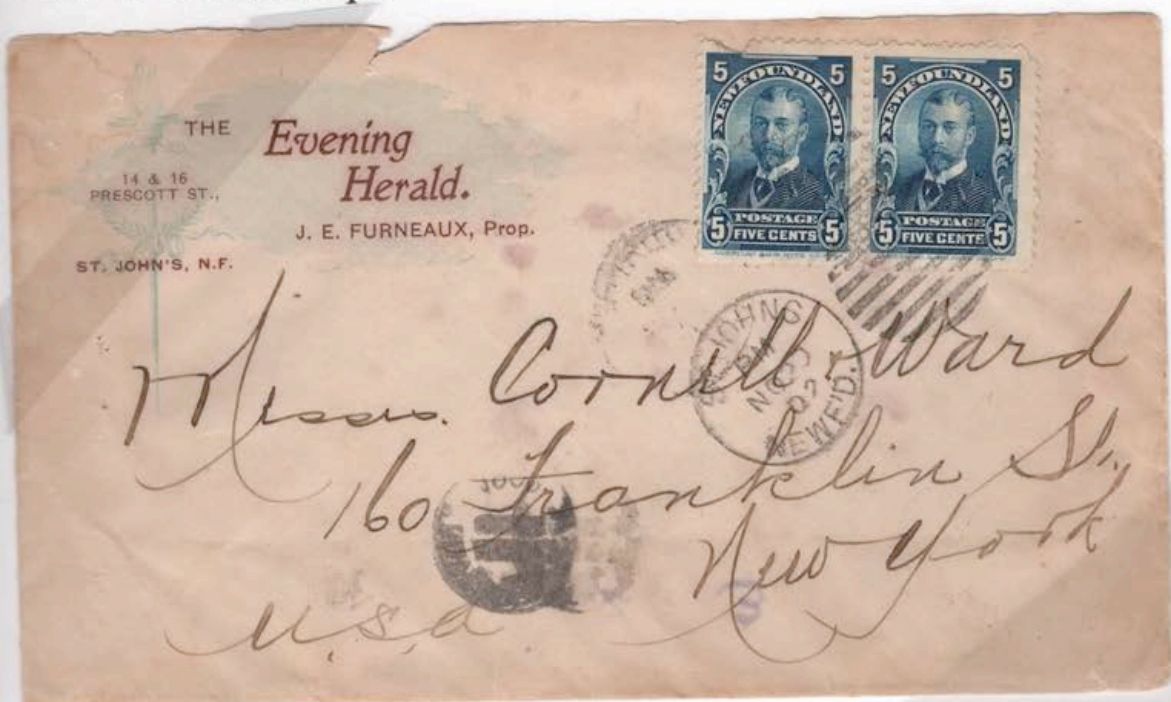 THE Evening
Herald.
14 & 16
PRESCOTT ST.,
J. E. FURNEAUX, Prop.
ST. JOHN'S, N.F.
5 5
NEWFOUNDLAND
5 POSTAGE 5
FIVE CENTS
5 5
NEWFOUNDLAND
5 POSTAGE 5
FIVE CENTS
ST. JOHNS
PM
NEWF'D.
Messrs. Cornell & Ward
160 Franklin St,
New York
U.S.A